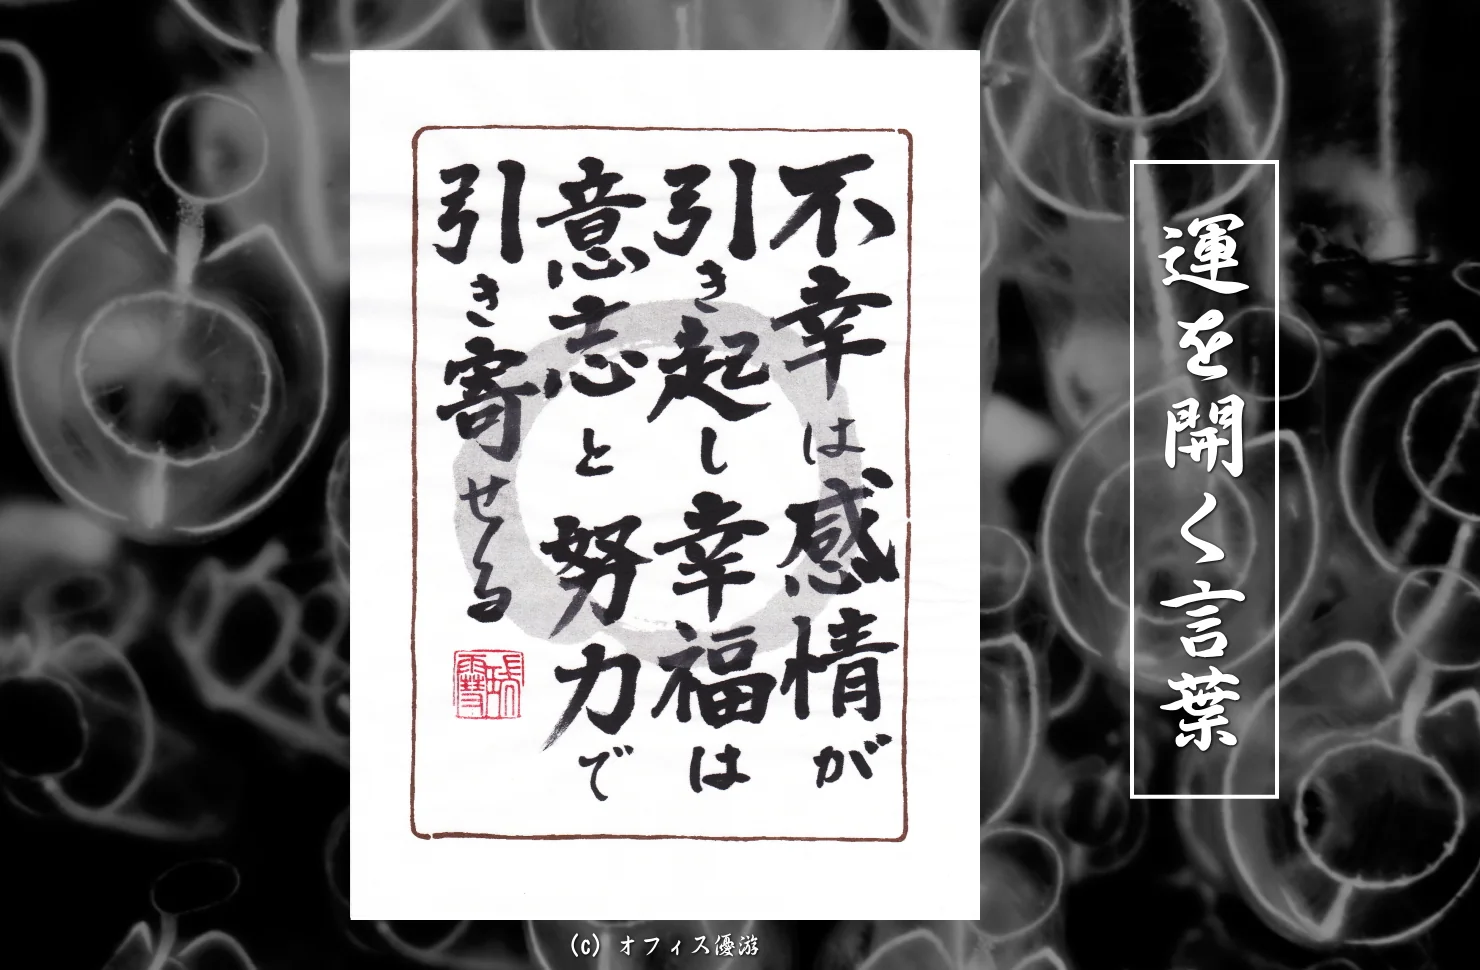 不幸は感情が
引き起し幸福は
意志と努力で
引き寄せる
運を開く言葉
(c) オフィス優游